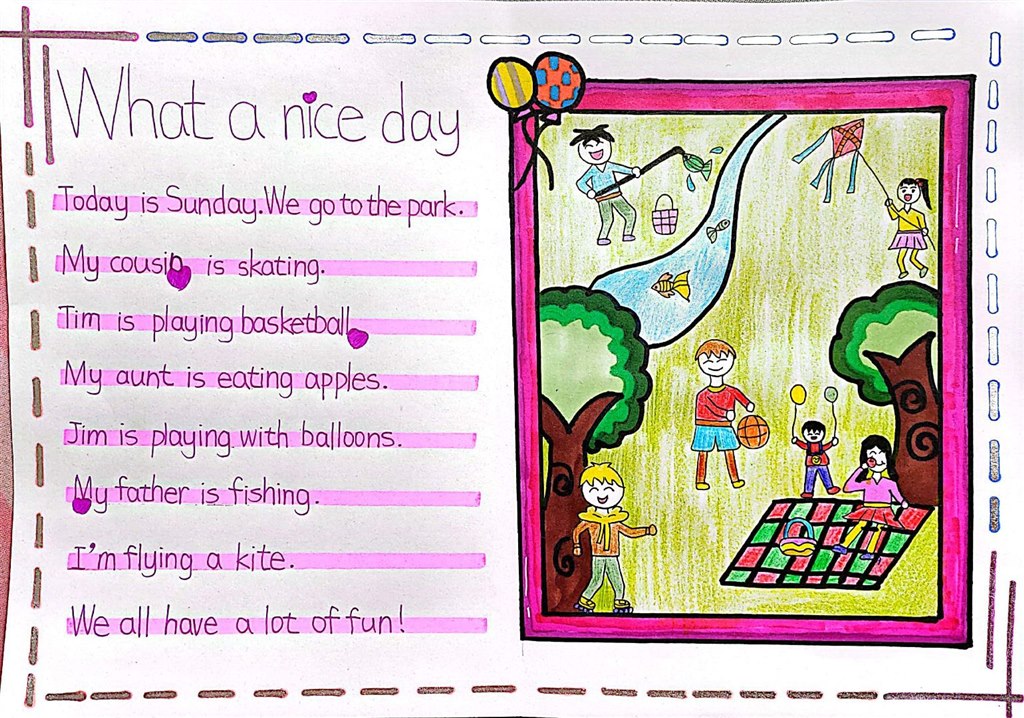 What a nice day
Today is Sunday. We go to the park.
My cousin is skating.
Tim is playing basketball.
My aunt is eating apples.
Jim is playing with balloons.
My father is fishing.
I'm flying a kite.
We all have a lot of fun!